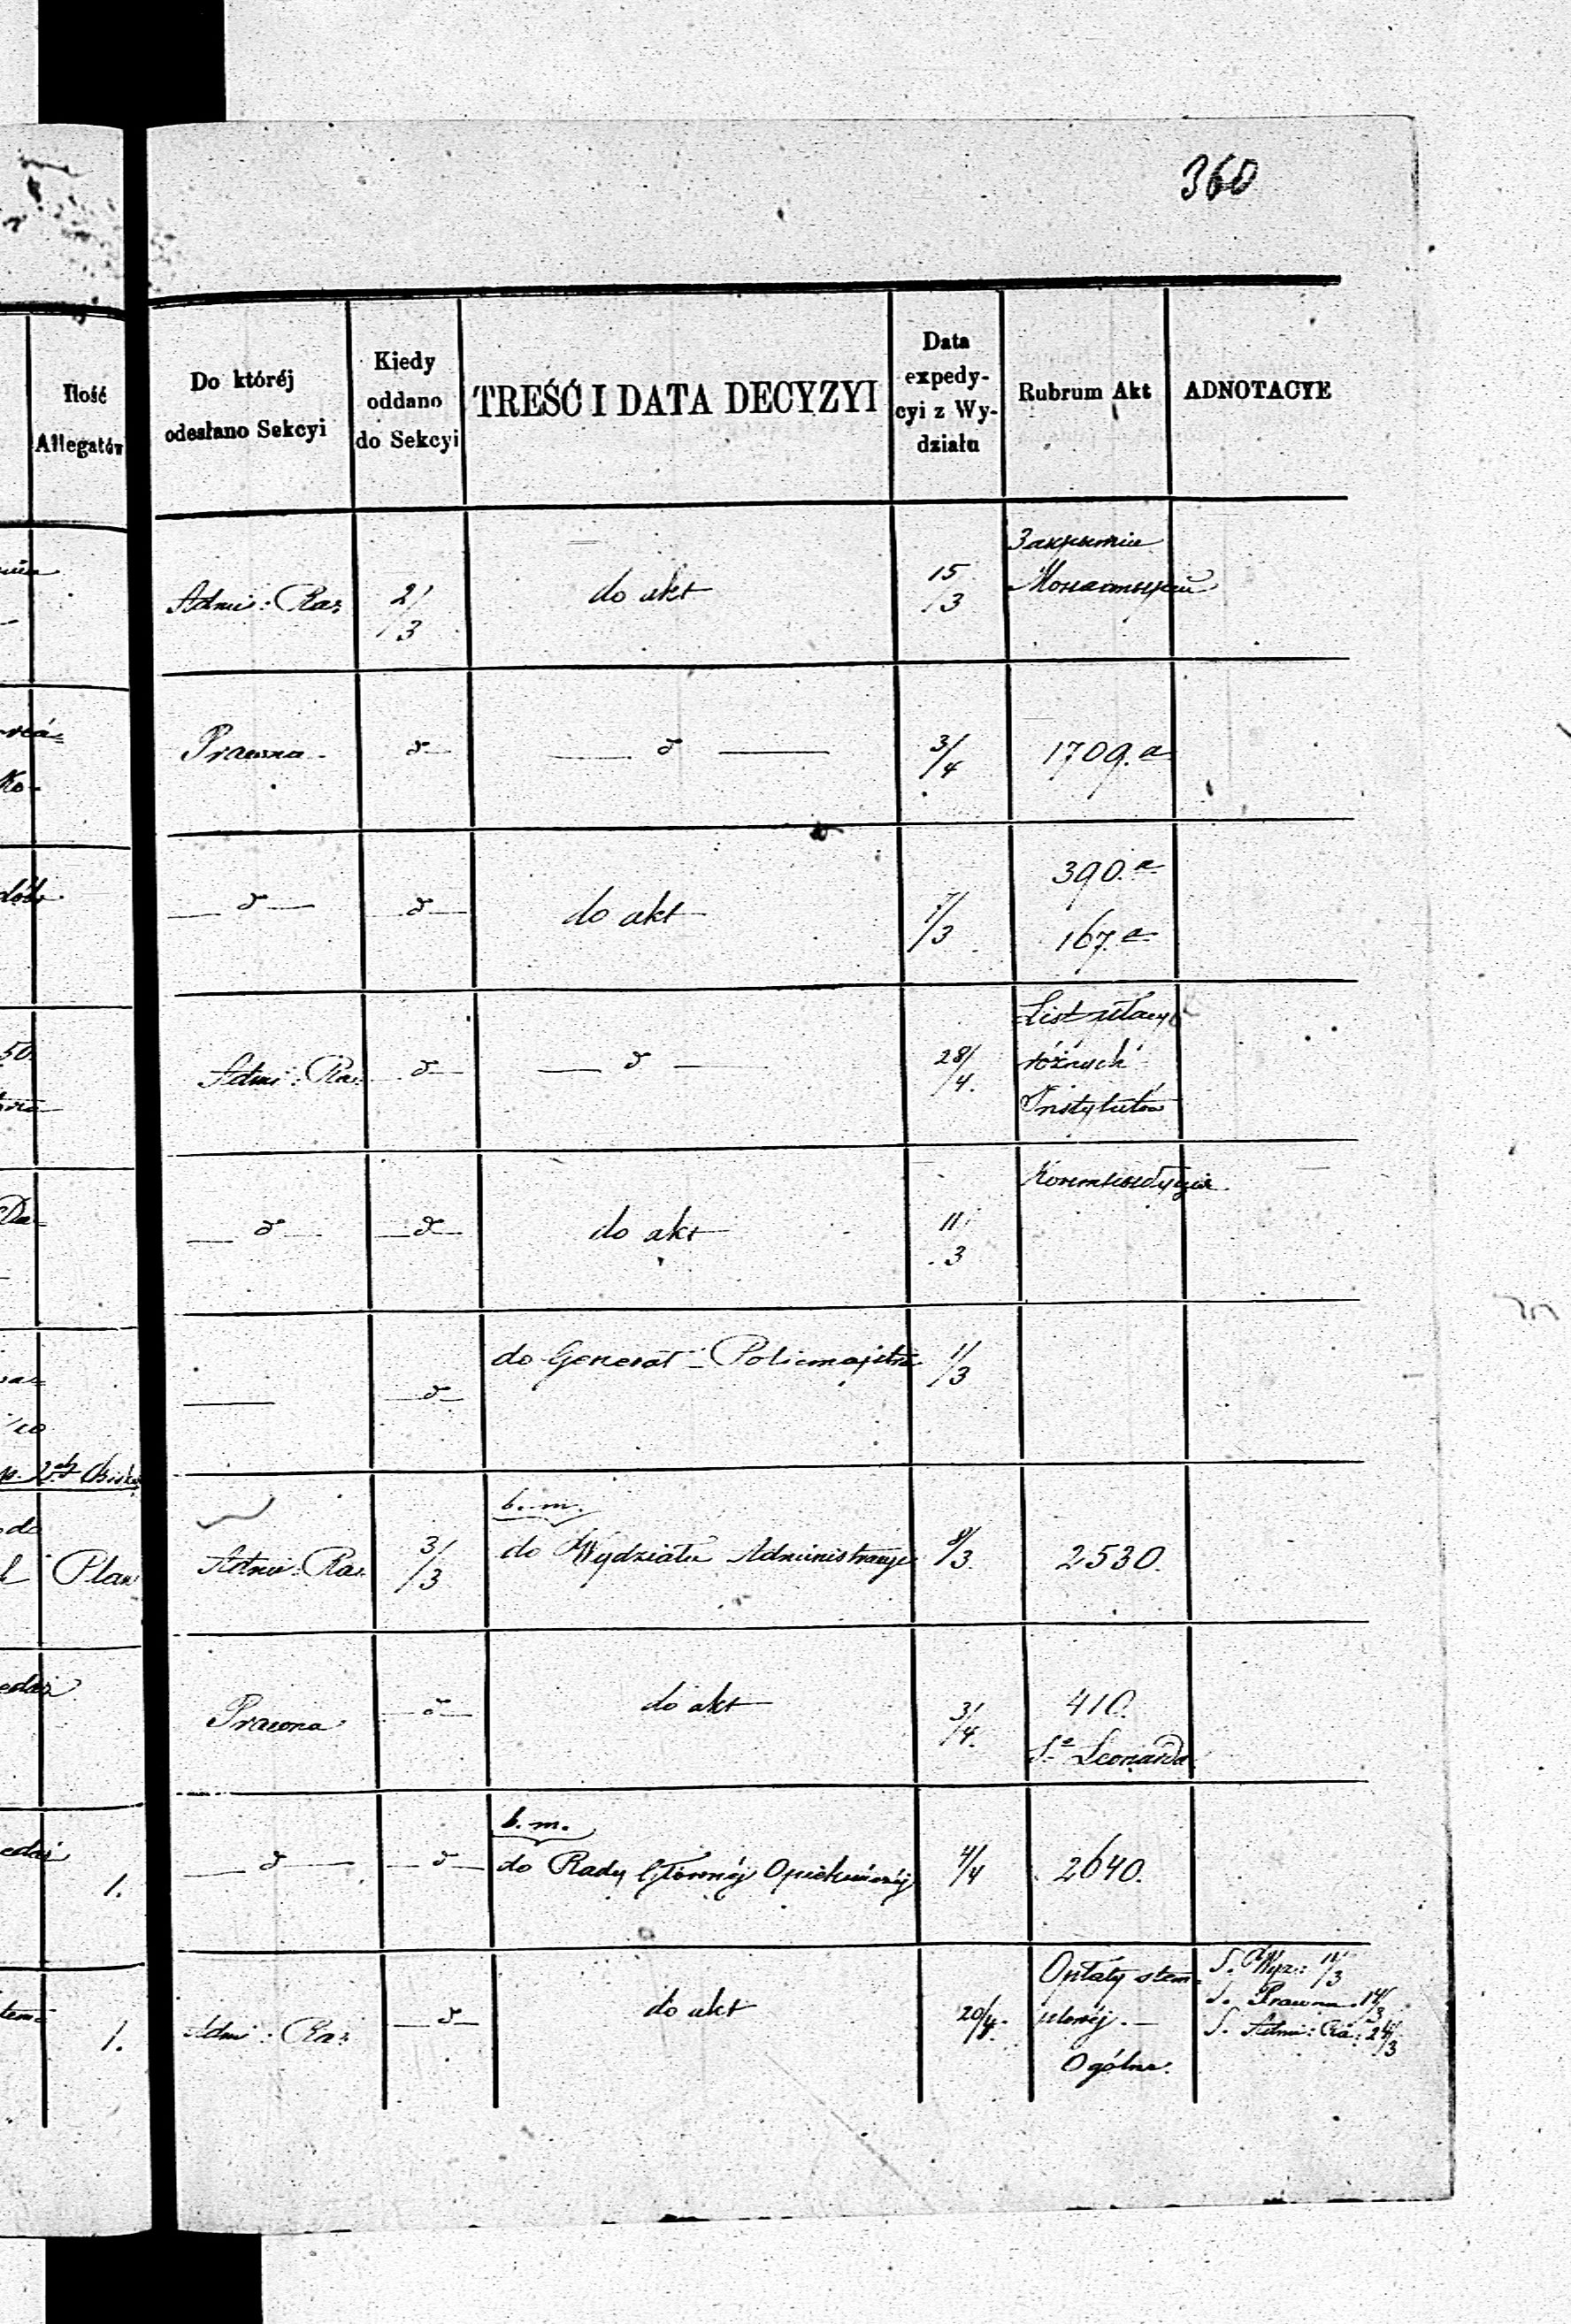 360
Ilość
Allegatów
Do któréj
odesłano Sekcyi
Kiedy
oddano
do Sekcyi
TREŚĆ I DATA DECYZYI
Data
expedy-
cyi z Wy-
działu
Rubrum Akt
ADNOTACYE
Admi: Ra: 2/3 do akt 15/3 Закрытіе
Монастырей
Prawna d d 3/4 1709.a
Ko-
dóbr d d do akt 7/3 390.a
167.a
50. Admi: Ra: d d 28/4. List
różnych
Instytutów
Da= d d do akt 11/3
d do Generał-Policmajstra 11/3
b. m.
Plan Admi: Ra: 3/3 do Wydziału Administracyj 9/3. 2530.
Prawna d do akt 3/4. 410.
S-o Leonarda
b. m.
1. d d do Rady Głównéj Opiekuńczéj 4/4 2640.
1. Admi: Ra: d do akt 20/4. Opłaty stem-
plowéj.
Ogólne.
S. Wyz: 11/3
S. Prawna. 14/3
S. Admi: Ra: 24/3